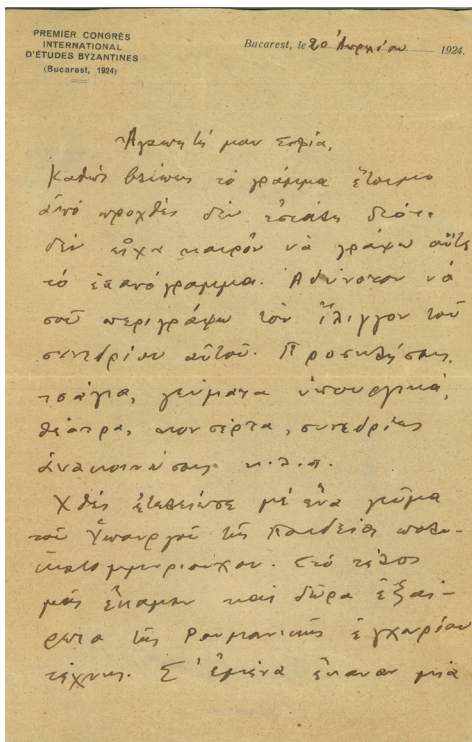 PREMIER CONGRÈS
INTERNATIONAL
D'ÉTUDES BYZANTINES
(Bucarest, 1924)
Bucarest, le 20 Ἀπριλίου 1924.
Ἀγαπητή μου Σοφία,
Καθὼς βλέπεις τὸ γράμμα ἕτοιμο
ἀπὸ προχθὲς δὲν ἐστάλη διότι
δὲν εἶχα καιρὸν νὰ γράψω οὔτε
τὸ ἐπανόγραμμα. Ἀδύνατον νὰ
σοῦ περιγράψω τὸν ἴλιγγον τοῦ
συνεδρίου αὐτοῦ. Προσκλήσεις,
τσάγια, γεύματα ὑπουργικά,
θέατρα, κονσέρτα, συνεδρίες
ἀνακοινώσεις κ.λ.π.
Χθὲς ἐτελείωσε μὲ ἕνα γεῦμα
τοῦ Ὑπουργοῦ τῆς Παιδείας
Στὸ τέλος
μᾶς ἔκαμαν καὶ δῶρα ἐξαί-
ρετα τῆς Ρουμανικῆς ἐγχωρίου
τέχνης. Σ' ἐμένα ἔκαναν μιὰ